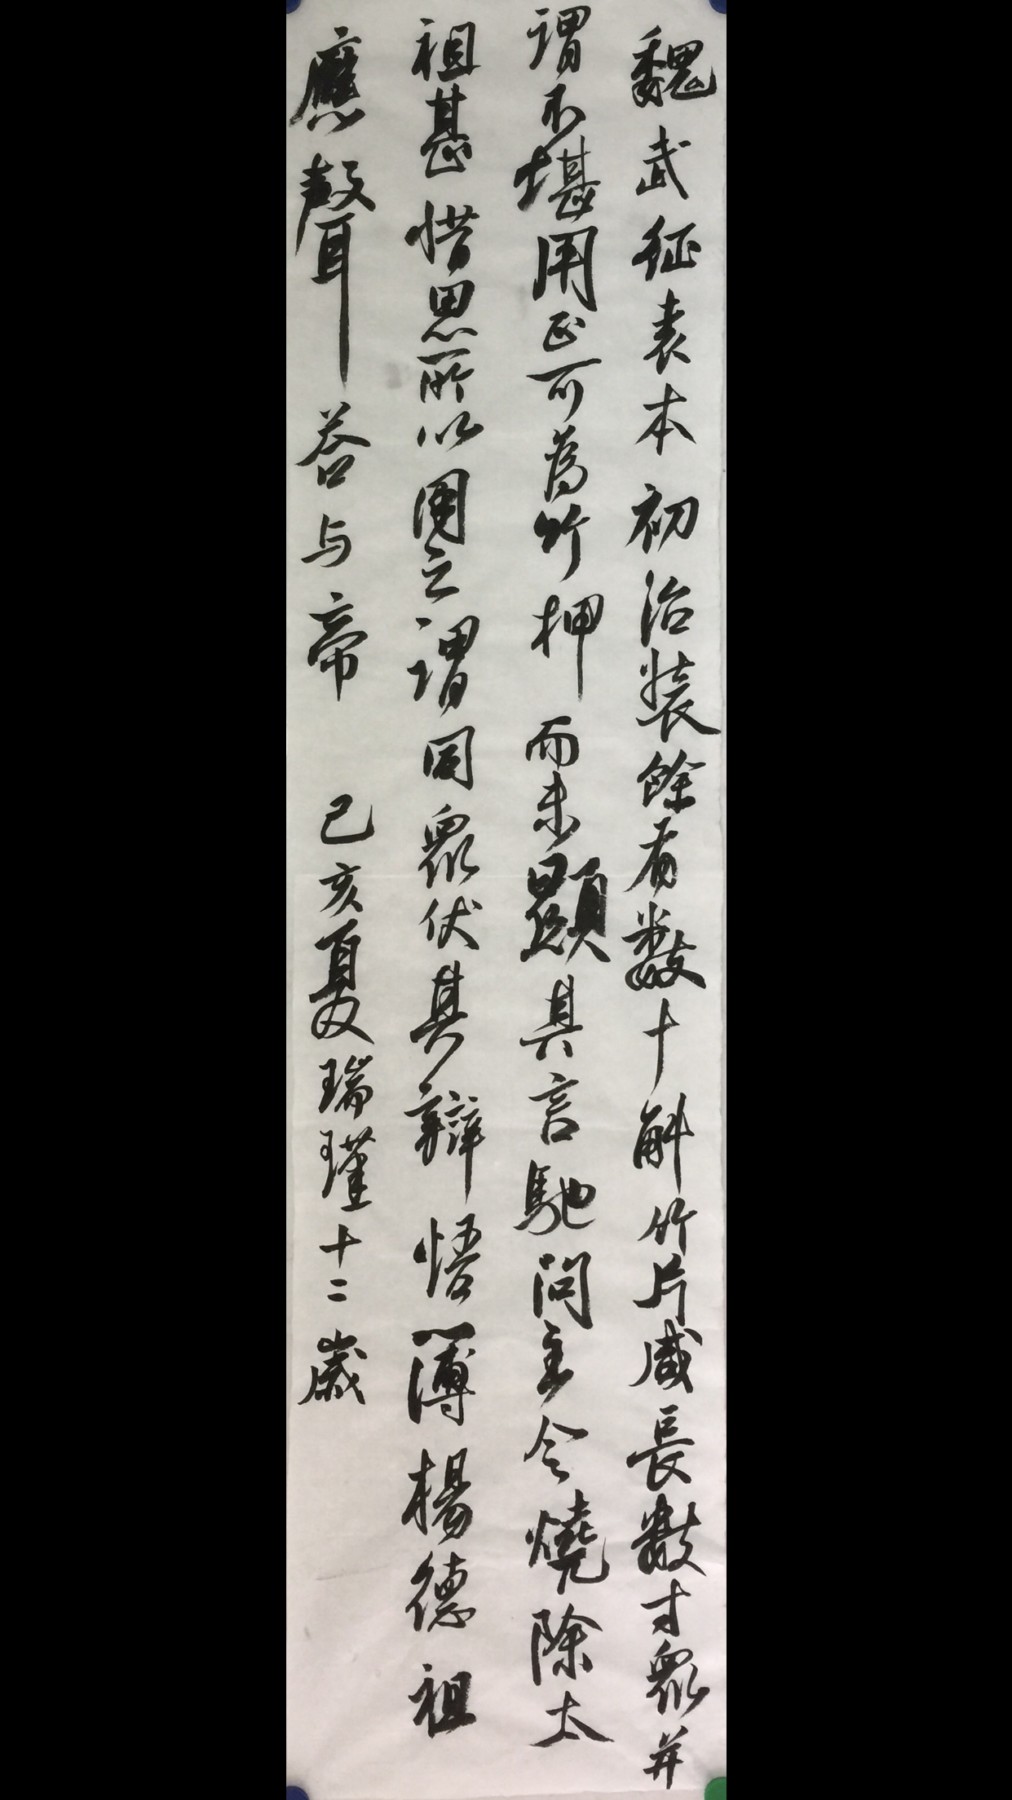 魏武征袁本初治裝餘有數十斛竹片咸長數寸眾并
謂不堪用正可為竹押而未顯其言馳問主令燒除太
祖甚惜思所以用之謂同眾伏其辯悟簿楊德祖
應聲答与帝 己亥夏瑞瑾十二歲